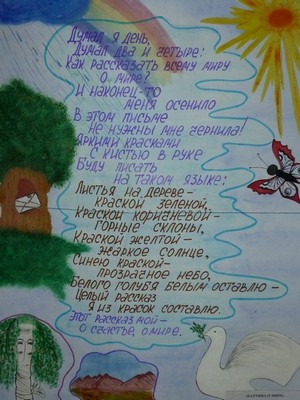 Думал я день,
Думал два и четыре:
Как рассказать всему миру
о мире?
И наконец-то
меня осенило
В этом письме
не нужны мне чернила!
Яркими красками
с кистью в руке
Буду писать
на таком языке:
Листья на дереве -
краской зелёной,
Краской коричневой -
горные склоны,
Краской желтой -
жаркое солнце,
Синею краской -
прозрачное небо,
Белого голубя белым оставлю -
Целый рассказ
я из красок составлю.
Этот рассказ мой -
о счастье, о мире.